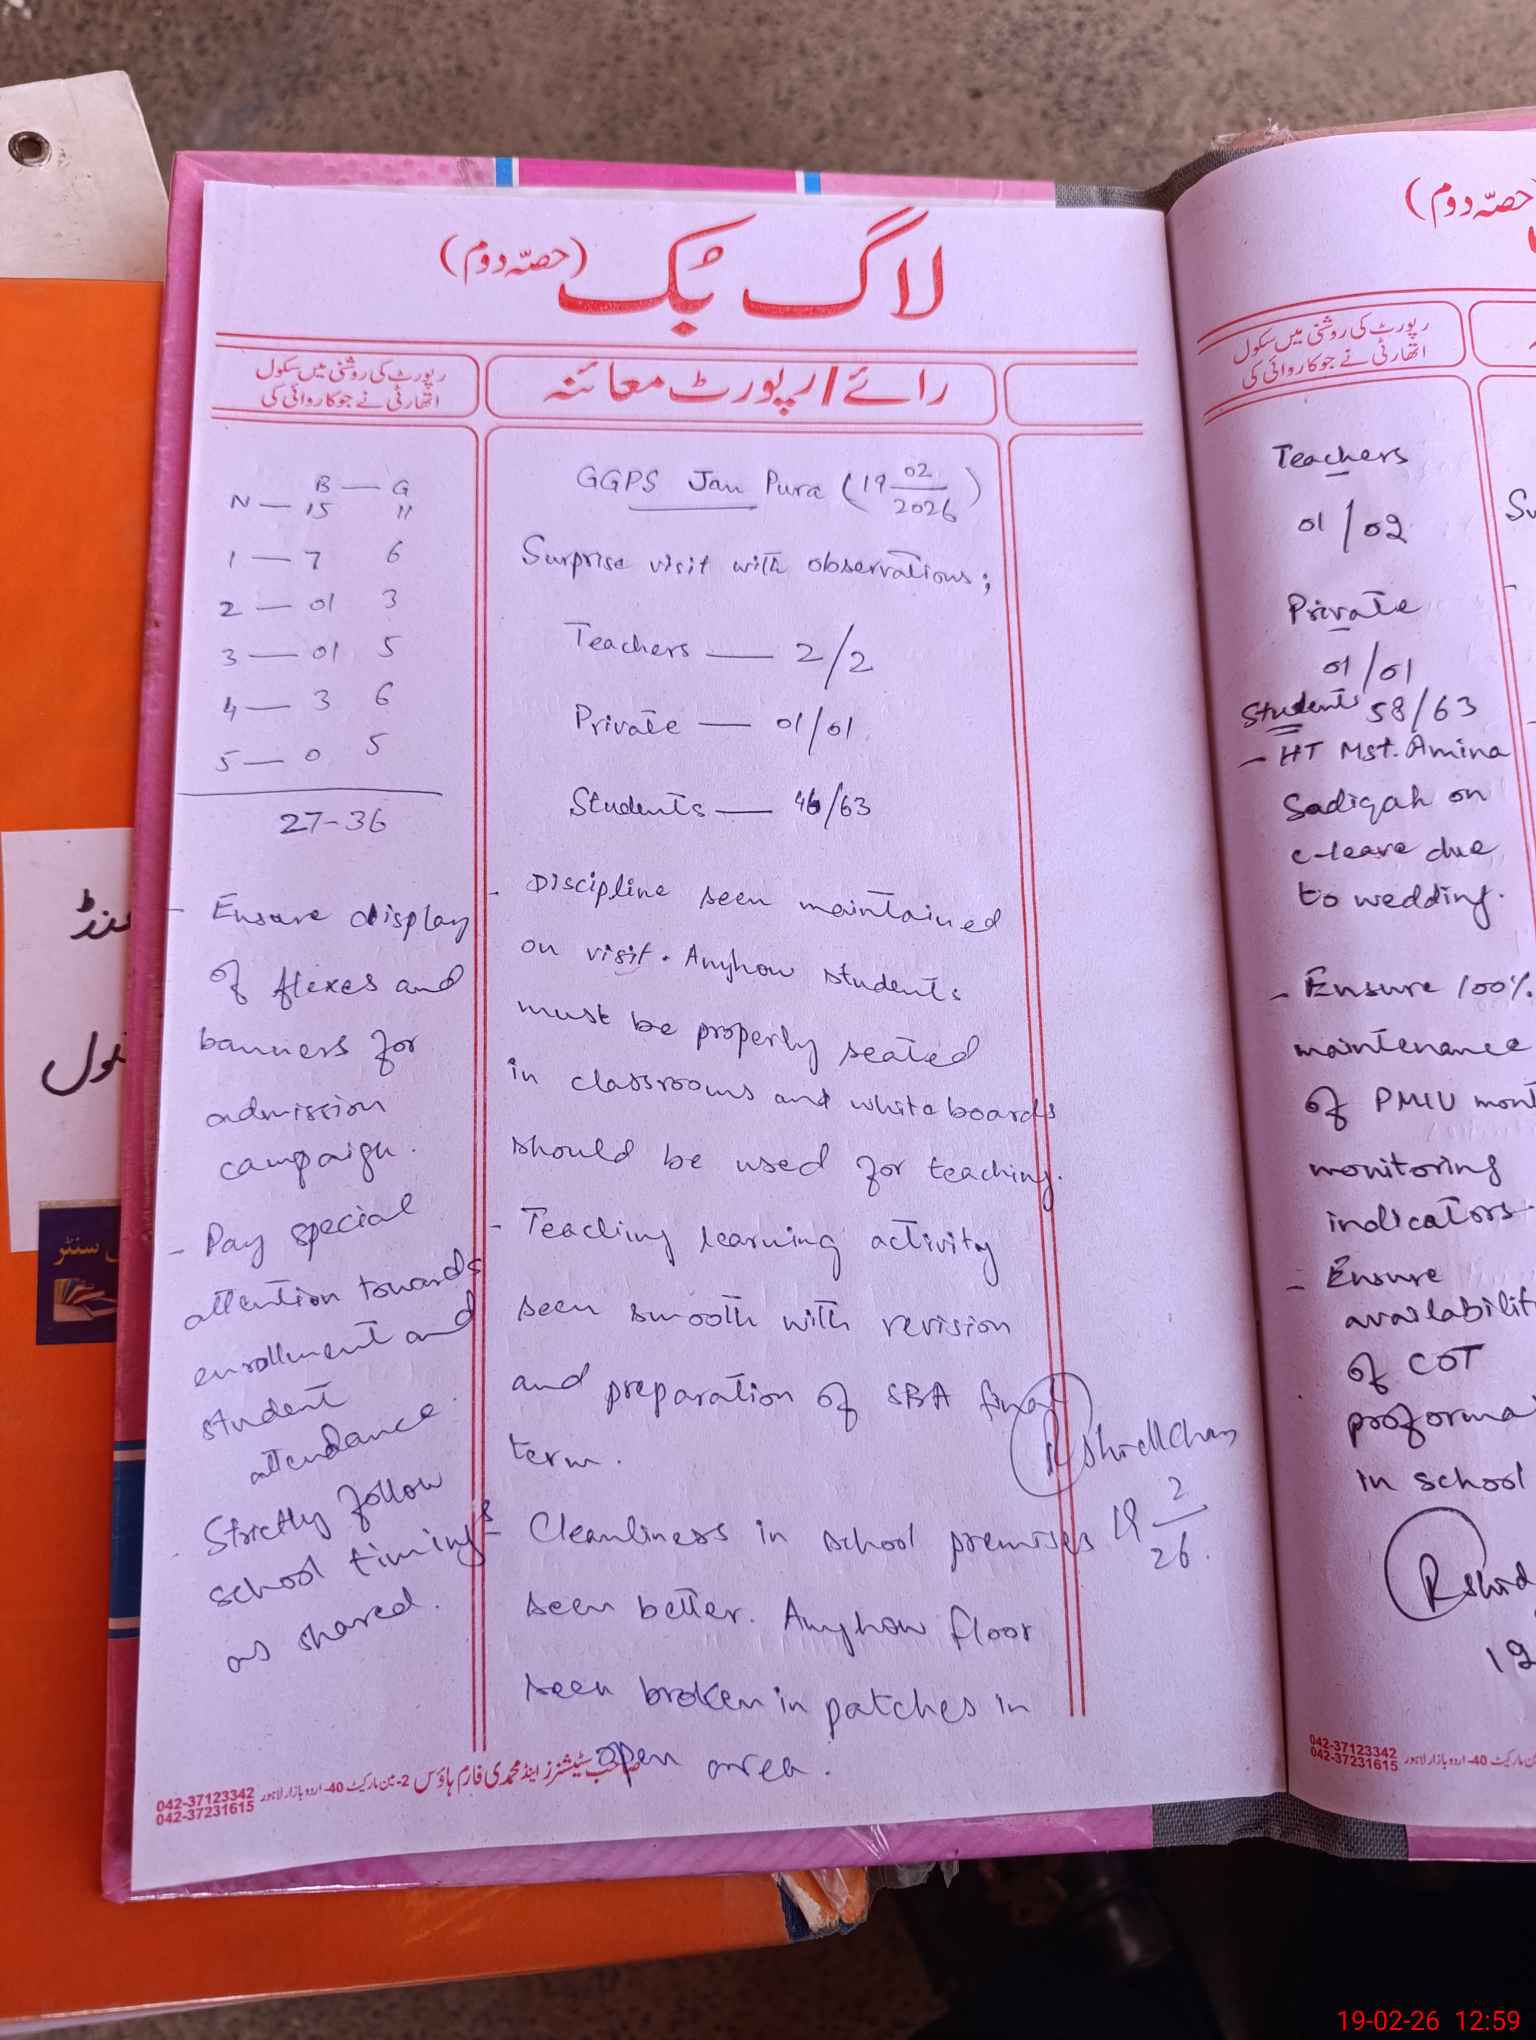 لاگ بُک (حصّہ دوم)
رپورٹ کی روشنی میں سکول
اتھارٹی نے جو کاروائی کی
رائے / رپورٹ معائنہ
B — G
N — 15 11
1 — 7 6
2 — 01 3
3 — 01 5
4 — 3 6
5 — 0 5
27-36
- Ensure display
of flexes and
banners for
admission
campaign.
- Pay special
attention towards
enrollment and
student
attendance.
- Strictly follow
school timings
as shared.
GGPS Jan Pura (19 02/2026)
Surprise visit with observations;
Teachers — 2/2
Private — 01/01
Students — 46/63
- Discipline seen maintained
on visit. Anyhow students
must be properly seated
in classrooms and whiteboards
should be used for teaching.
- Teaching learning activity
seen smooth with revision
and preparation of SBA final
term.
- Cleanliness in school premises
seen better. Anyhow floor
seen broken in patches in
open area.
19 2/26.
صاحب سٹیشنرز اینڈ محمدی فارم ہاؤس 2- مین مارکیٹ 40- اردو بازار لاہور
042-37123342
042-37231615
(حصّہ دوم)
رپورٹ کی روشنی میں سکول
اتھارٹی نے جو کاروائی کی
Teachers
01/02
Private
01/01
Students 58/63
- HT Mst. Amina
Sadiqah on
c-leave due
to wedding.
- Ensure 100%
maintenance
of PMIU mont
monitoring
indicators.
- Ensure
availabilit
of COT
proforma
in school
042-37123342
042-37231615
مین مارکیٹ 40- اردو بازار لاہور
سنٹر
19-02-26 12:59